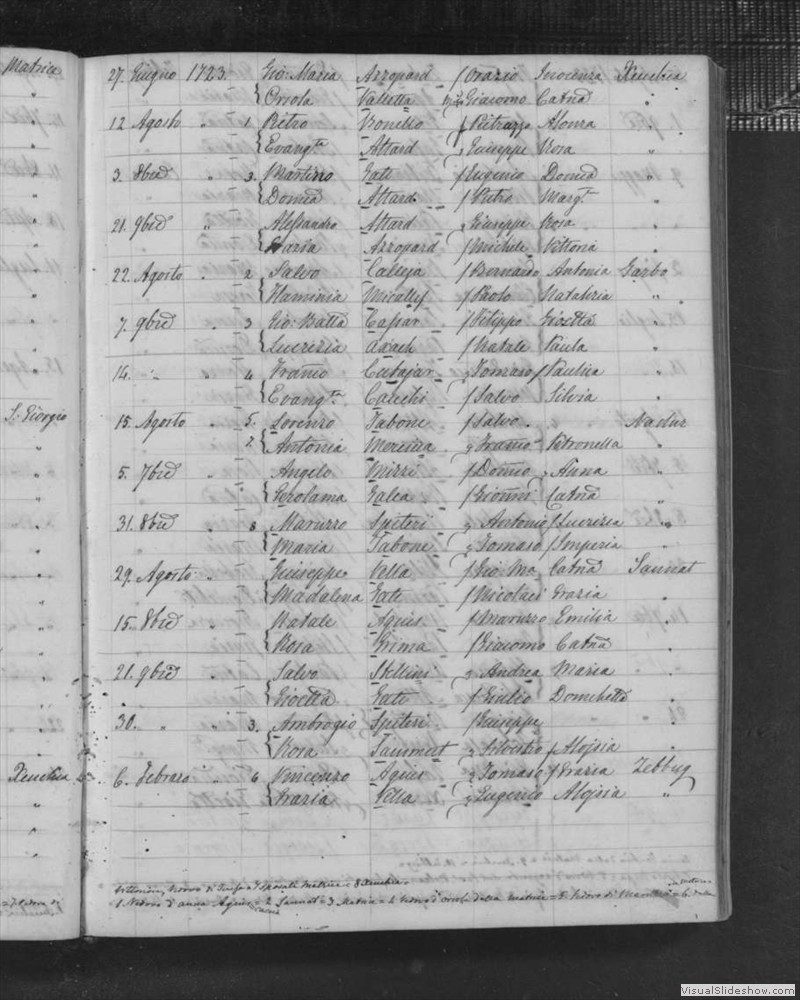 Matrice
27. Giugno 1723. Gio: Maria Azzopard f Orazio Inocenza Xeuchia
Oriola Valletta Giacomo Catna "
12 Agosto " 1 Pietro Bonello f Pietruzzo Alonza "
Evangta Attard Giuseppe Rosa "
3. 8bre 3. Martino Gati f Eugenio Domca "
Domca Attard f Pietro Margta "
21. 9bre " Alessandro Attard Giuseppe Rosa "
Maria Azzopard f Michele Vittoria "
22. Agosto " 2 Salvo Calleja f Bernardo Antonia Garbo
Flaminia Micallef f Paolo Natalizia "
7. 9bre " 3 Gio: Batta Caspar f Filippo Gioetta "
Lucrezia Axach f Natale Paula "
14. " " 4 Franco Cutajar Tomaso f Paulica "
Evangta Calechi f Salvo Silvia "
S. Giorgio
15. Agosto " 5. Lorenzo Tabone f Salvo Nadur
2 Antonia Franco Petronella "
5. 7bre Angelo Mizzi f Domco Anna "
Gerolama Galea f Gionni Catna "
31. 8bre " 8 Maruzzo Spiteri Antonio f Lucrezia "
Maria Tabone Tomaso f Imperia "
29. Agosto " Giuseppe Vella f Gio: Ma Catna Sannat
Madalena Gati f Nicolaci Grazia "
15. 8bre Natale Agius f Maruzzo Emilia "
Rosa Grima f Giacomo Catna "
21. 9bre Salvo Stellini Andrea Maria "
Gioetta Gati f Giulio Domchetta "
30. " " 3. Ambrogio Spiteri Giuseppe
Rosa Tammut Silvestro f Alojsia "
Xeuchia
6. Febraro " 6 Vincenzo Agius Tomaso f Grazia Zebbug
Grazia Vella Eugenio Alojsia "
1 Vedovo d'anna Agius = 2 Sannat = 3 Matrice = 2 Vedovo della matrice = 5 Vedovo di = 6.
VisualSlideshow.com